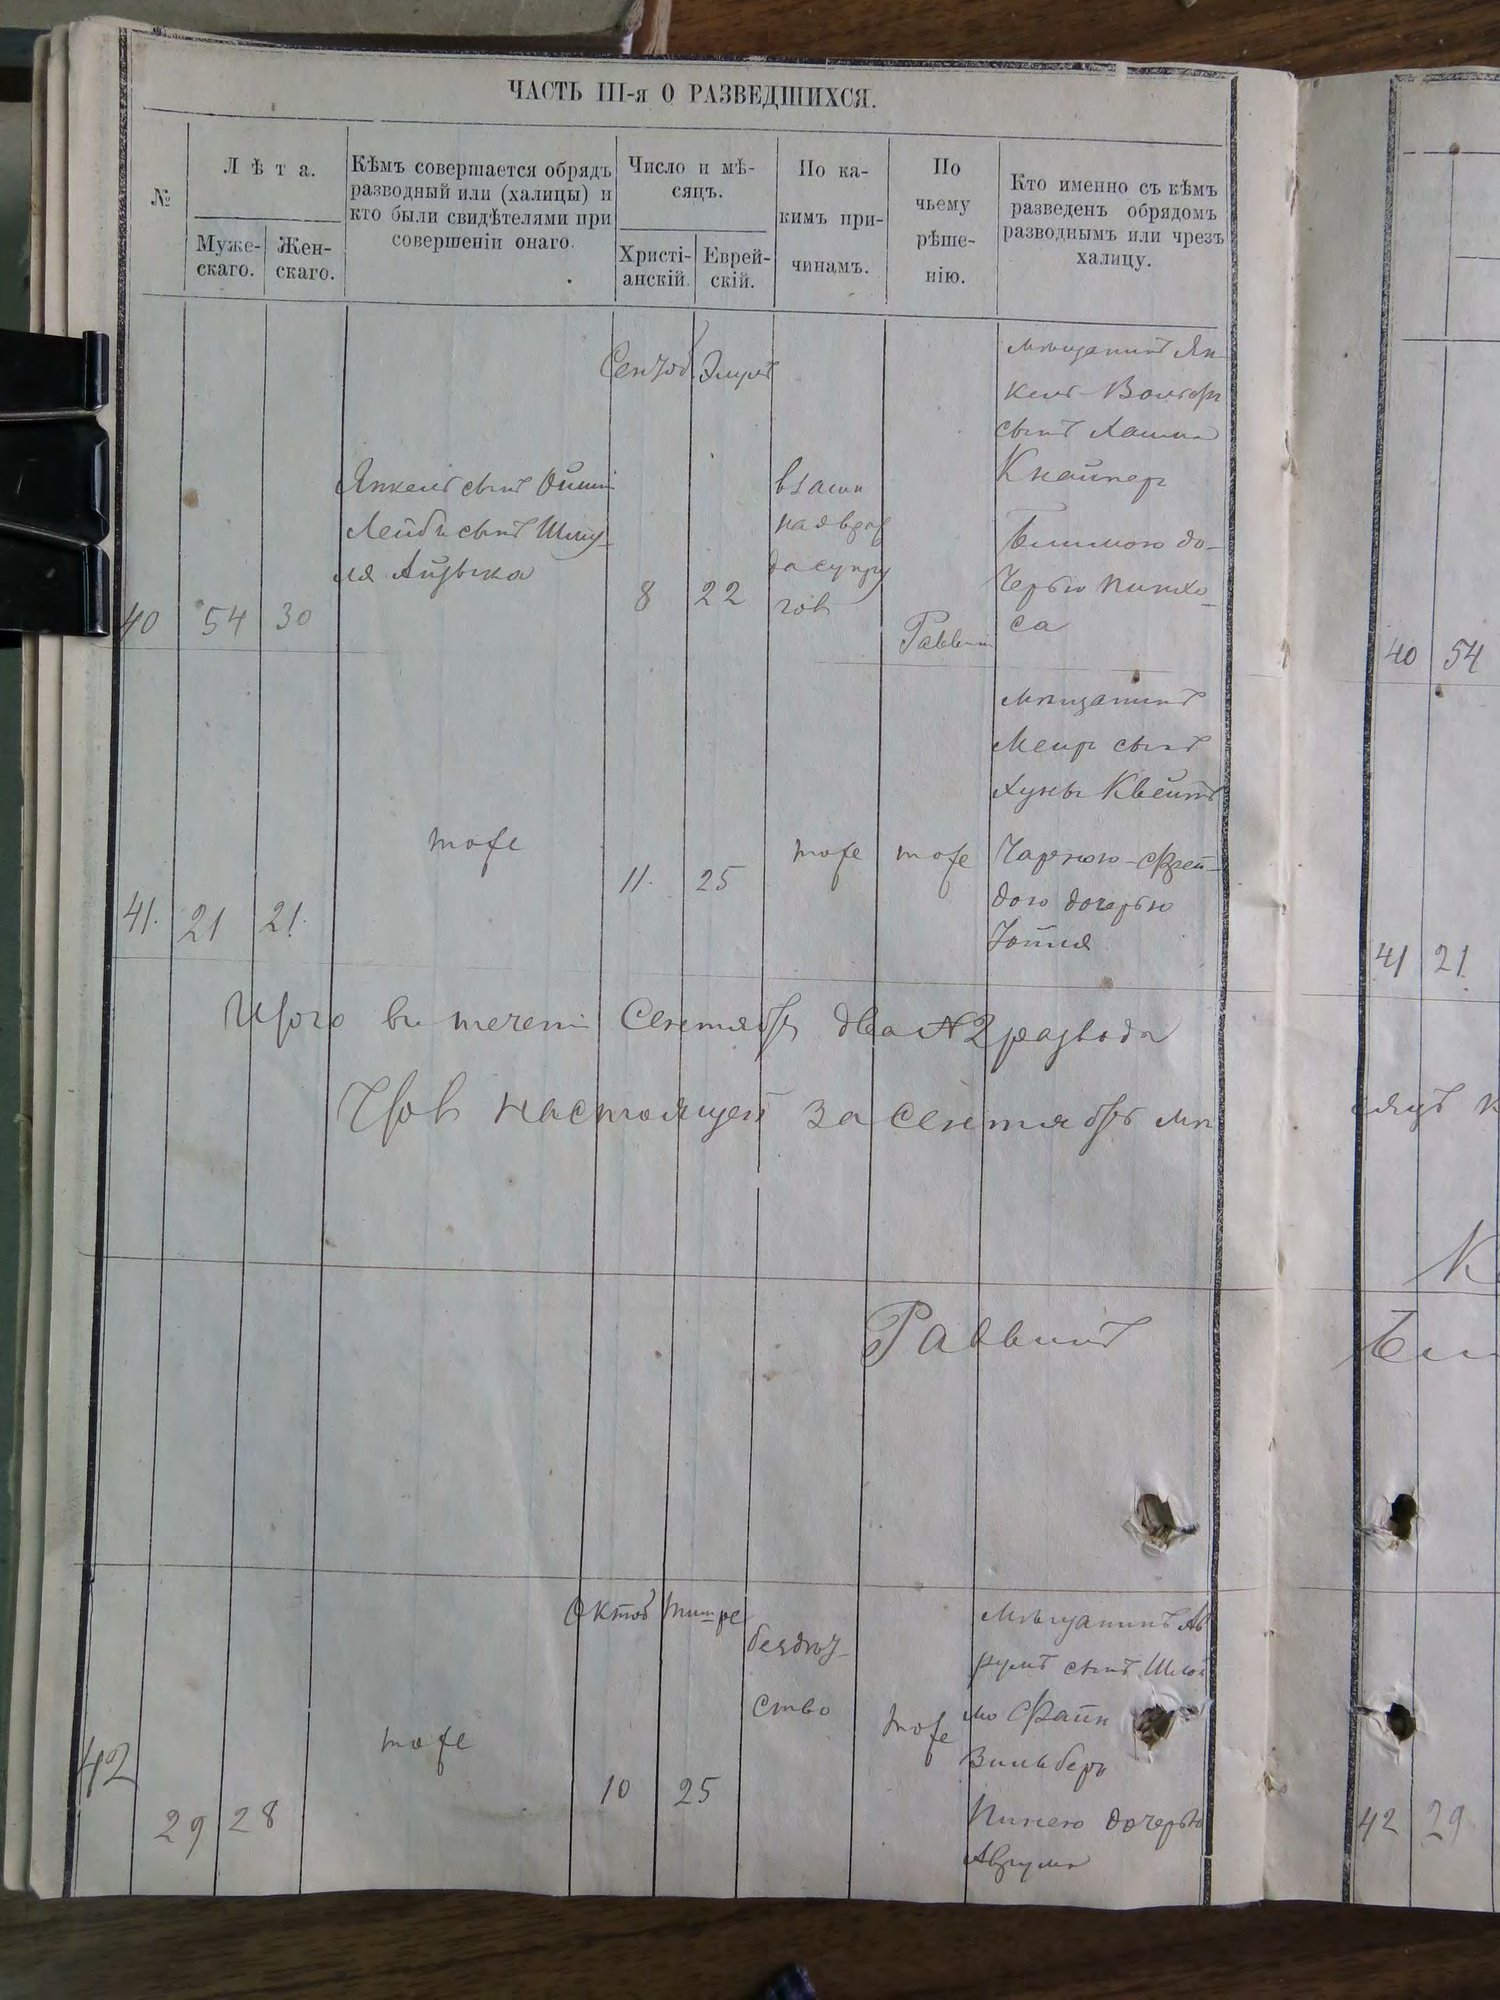 ЧАСТЬ III-я О РАЗВЕДШИХСЯ.
№
Лѣта.
Муже-
скаго.
Жен-
скаго.
Кѣмъ совершается обрядъ
разводный или (халицы) и
кто были свидѣтелями при
совершеніи онаго.
Число и мѣ-
сяцъ.
Христі-
анскій.
Еврей-
скій.
По ка-
кимъ при-
чинамъ.
По
чьему
рѣше-
нію.
Кто именно съ кѣмъ
разведенъ обрядомъ
разводнымъ или чрезъ
халицу.
40
54
30
Янкель сынъ
Лейбъ сынъ Шму-
ля Айзыка
8
22
взаим
ная враж
да супру
говъ
Раввинъ
мѣщанинъ Ян
кель-Вольфъ
сынъ Хаима
Кнайпер
дo-
черью Пинхо-
са
41.
21
21.
тоже
11.
25
тоже
тоже
мѣщанинъ
Меир сынъ
Хуны Квейтъ
Чарною-Фрей-
дою дочерью
Итого въ течени Сентябр два № 2 развода
настоящей за сентябрь мѣ
Раввинъ
42
29
28
тоже
Октяб
Тишре
10
25
бездѣт-
ство
тоже
Мѣщанинъ Ав
румъ сынъ Шлой
мо Файн
Зильберъ
дочерью
Аврума
40
54
41
21
сяцъ
42
29